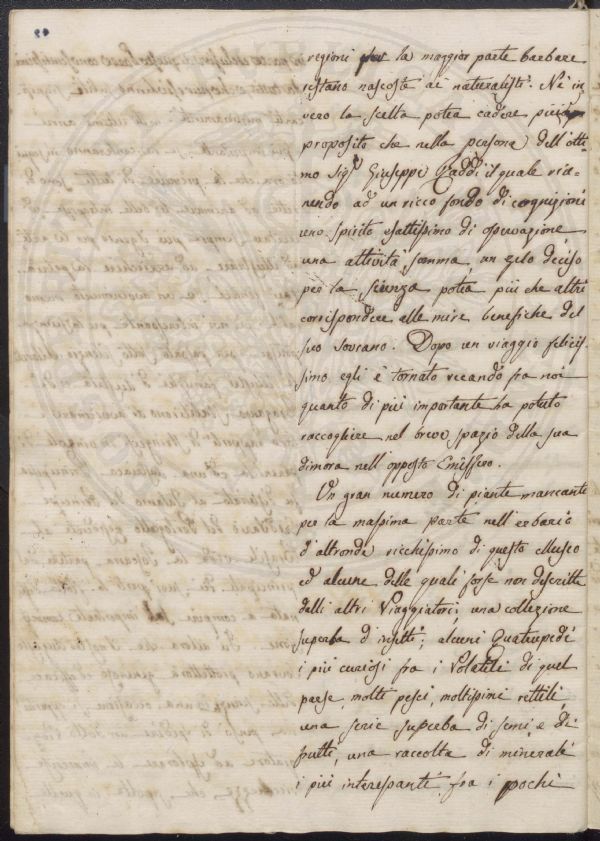 regioni per la maggior parte barbare
restano nascoste ai naturalisti. Nè in
vero la scelta potea cadere più a
proposito che nella persona dell'otti-
mo Sigr Giuseppe Raddi il quale riu-
nendo ad un ricco fondo di cognizioni
uno spirito esattissimo di osservazione
una attività somma, un zelo deciso
per la scienza potea più che altri
corrispondere alle mire benefiche del
suo Sovrano. Dopo un viaggio felicis-
simo egli è tornato recando fra noi
quanto di più importante ha potuto
raccogliere nel breve spazio della sua
dimora nell'opposto Emisfero.
Un gran numero di piante mancante
per la massima parte nell'erbario
d'altronde ricchissimo di questo Museo
ed alcune delle quali forse non descritte
dalli altri Viaggiatori; una collezione
superba d'insetti; alcuni Quatrupedi
i più curiosi fra i Volatili di quel
paese, molti pesci, moltissimi rettili
una serie superba di semi, e di
frutti, una raccolta di minerali
i più interessanti fra i pochi